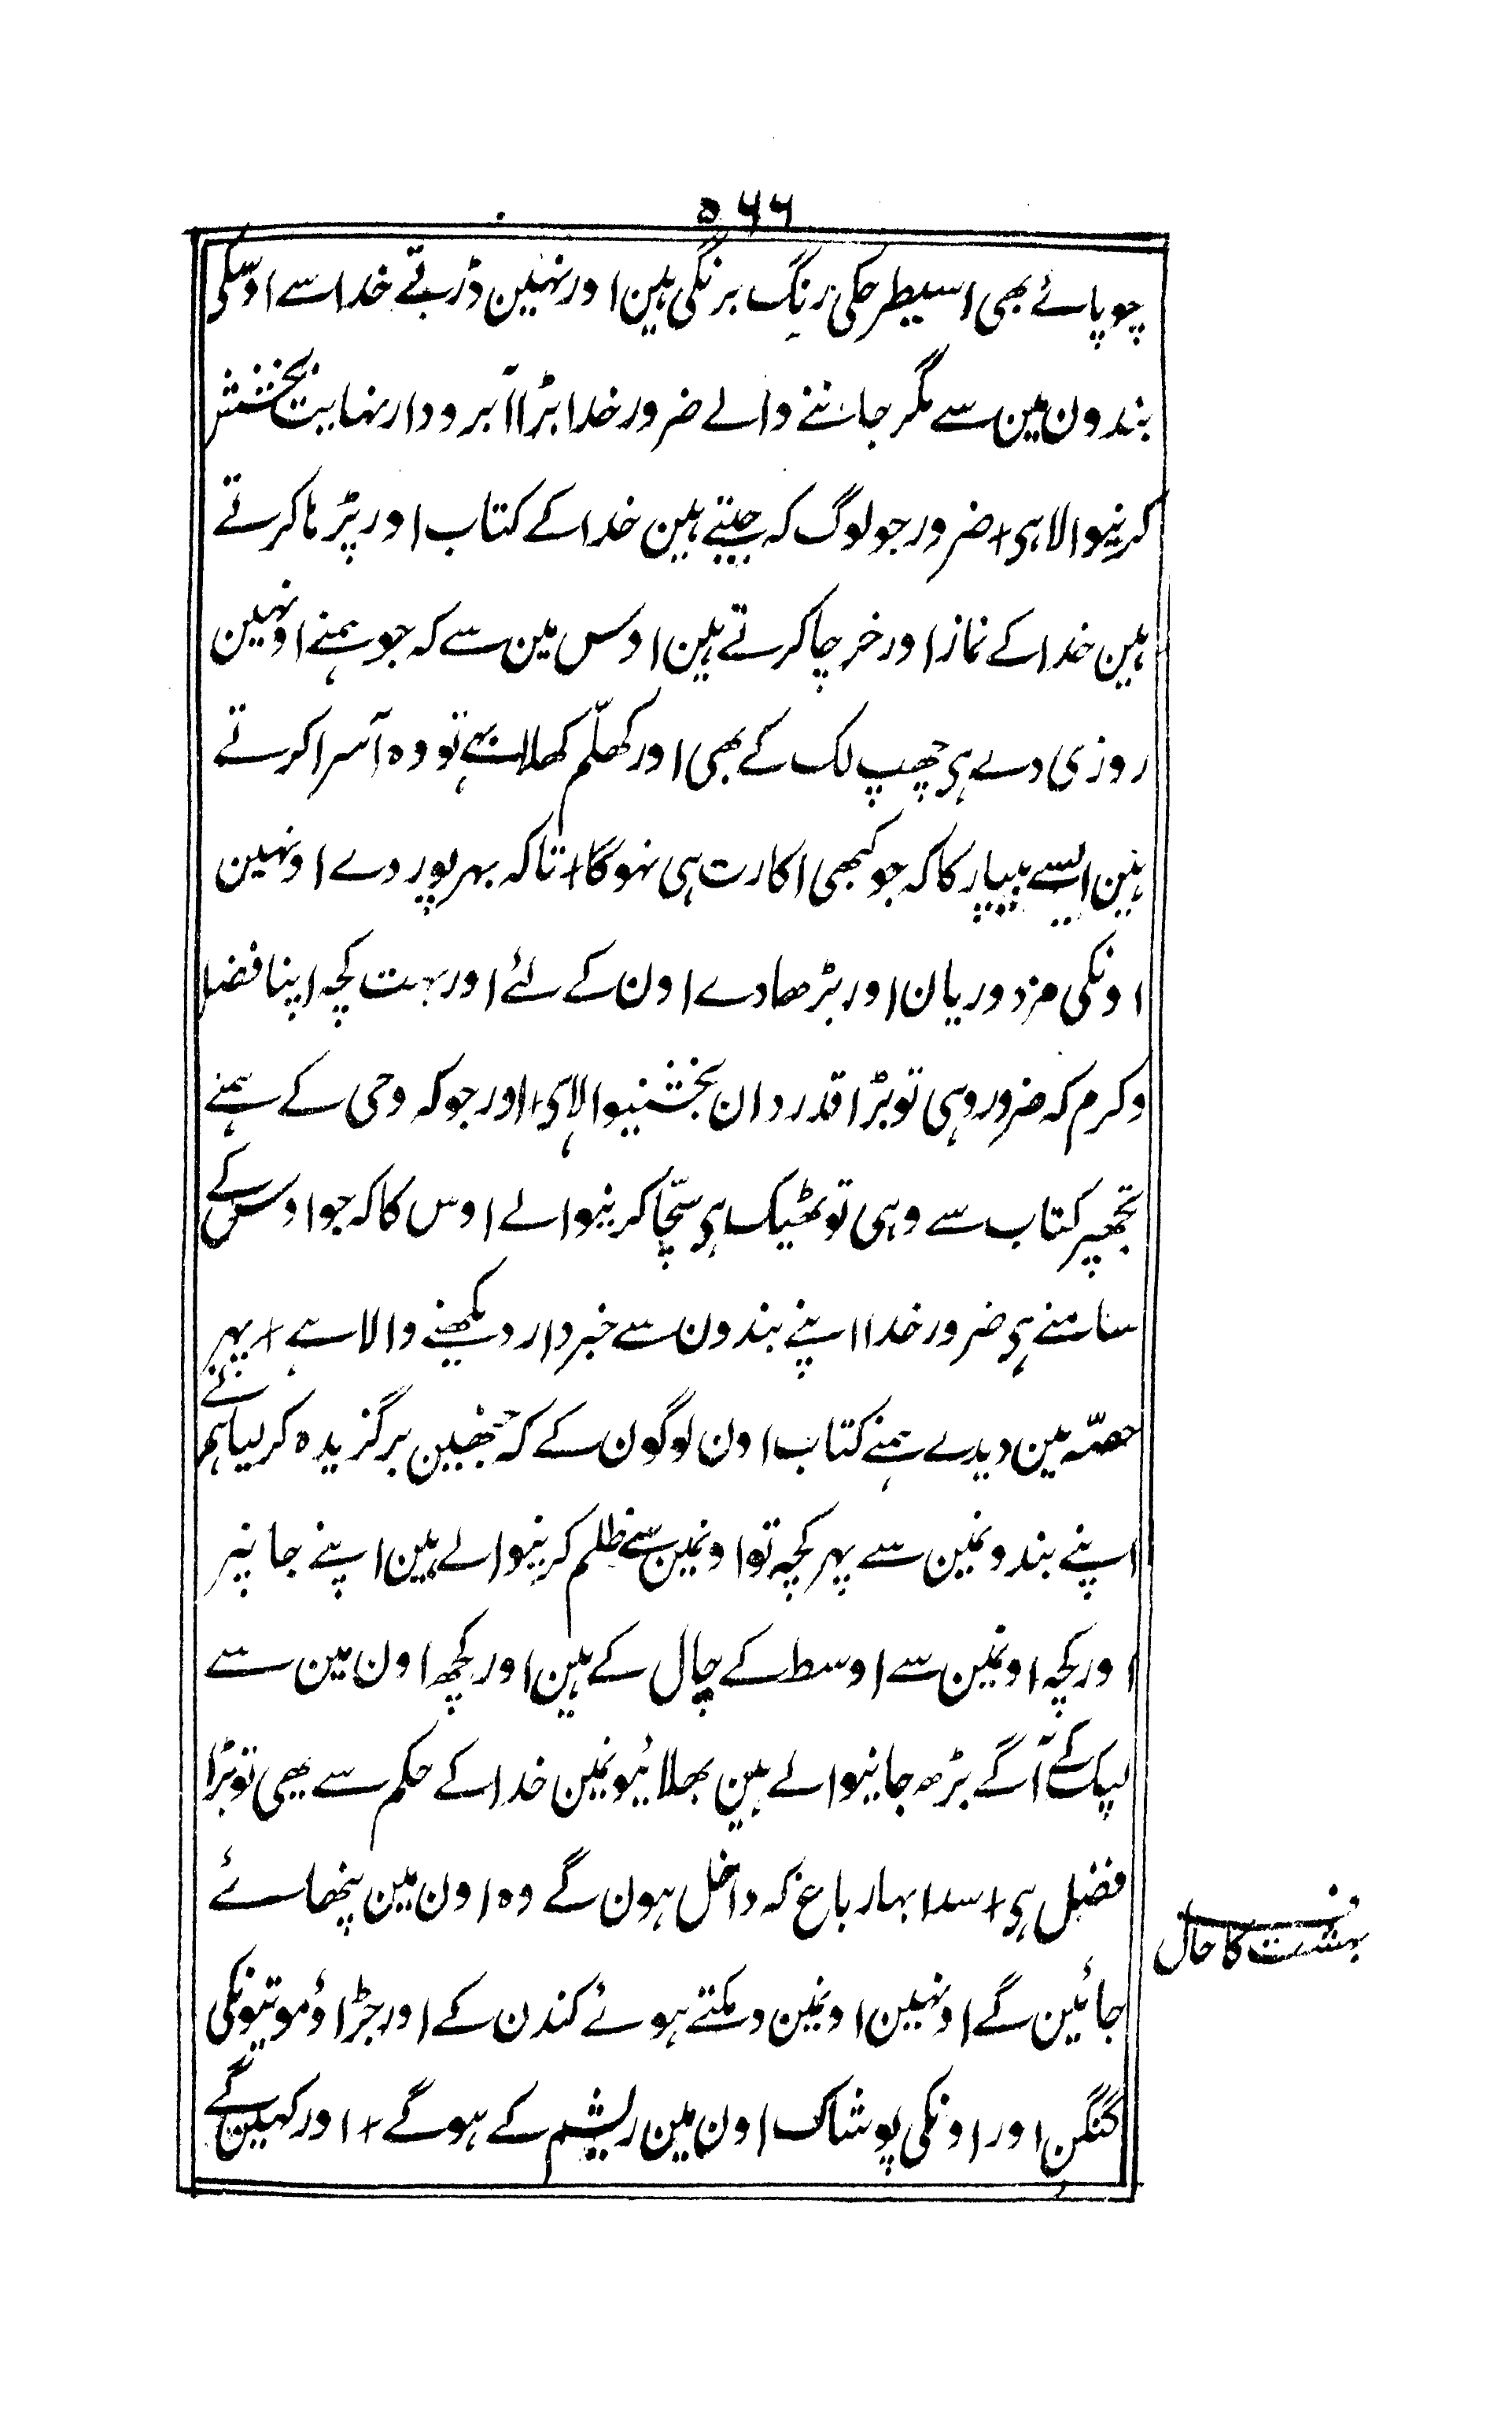 ۵۶۶
چوپائے بھی اسیطرحکی رنگ برنگی ہین اور نہین ڈرتے خدا سے اوسکی
بندون مین سے مگر جاننے والے ضرور خدا بڑا آبرودار نہایت بخشش
کرنیوالا ہی + ضرور جو لوگ کہ جپتے ہین خدا کے کتاب اور پڑہا کرتے
ہین خدا کے نماز اور خرچا کرتے ہین اوس مین سے کہ جو ہمنے اونہین
روزی دے ہی چھپ لک کے بھی اور کھلّم کھلا بہے تو وہ آسرا کرتے
ہین ایسے بیپار کا کہ جو کبھی اکارت ہی نہوگا + تاکہ بہرپور دے اونہین
اونکی مزدوریان اور بڑھا دے اون کے لئے اور بہت کچہ اپنا فضل
وکرم کہ ضرور وہی تو بڑا قدردان بخشنیوالا ہی + اور جو کہ وحی کے ہمنے
تجھپر کتاب سے وہی تو ٹھیک ہی سچّا کرنیوالے اوس کا کہ جو اوس کے
سامنے ہی ضرور خدا اپنے بندون سے خبردار دیکھنے والا ہے + پہر
حصّہ مین دیدے ہمنے کتاب اون لوگون کے کہ جنھین برگزیدہ کر لیا ہمنے
اپنے بندونمین سے پہر کچہ تو اونمین سے ظلم کرنیوالے ہین اپنے جانپر
اور کچہ اونمین سے اوسط کے چال کے ہین اور کچھ اون مین سے
لپک کے آگے بڑھ جانیوالے ہین بھلائیونمین خدا کے حکم سے یھی تو بڑا
فضل ہی + سدا بہار باغ کہ داخل ہون گے وہ اون مین پنھائے
جائین گے اونہین اونمین دمکتے ہوئے کندن کے اور جڑاؤ موتیونکی
کنگن اور اونکی پوشاک اون مین ریشم کے ہوگے + اور کہین گے
ف
بہشت کا حال